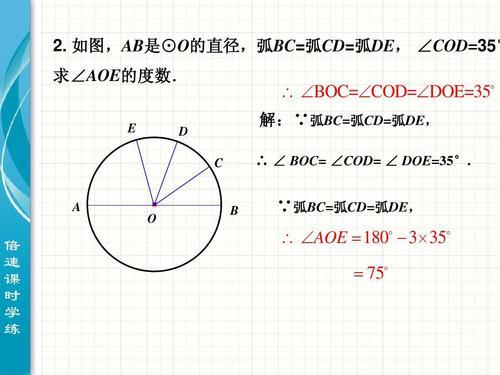 2. 如图，AB是⊙O的直径，弧BC=弧CD=弧DE， ∠COD=35°
求∠AOE的度数.
∴ ∠BOC=∠COD=∠DOE=35°
解：∵弧BC=弧CD=弧DE，
∴ ∠ BOC= ∠COD= ∠ DOE=35°.
∵弧BC=弧CD=弧DE，
∴ ∠AOE = 180° − 3×35°
= 75°
E
D
C
A
O
B
倍速课时学练